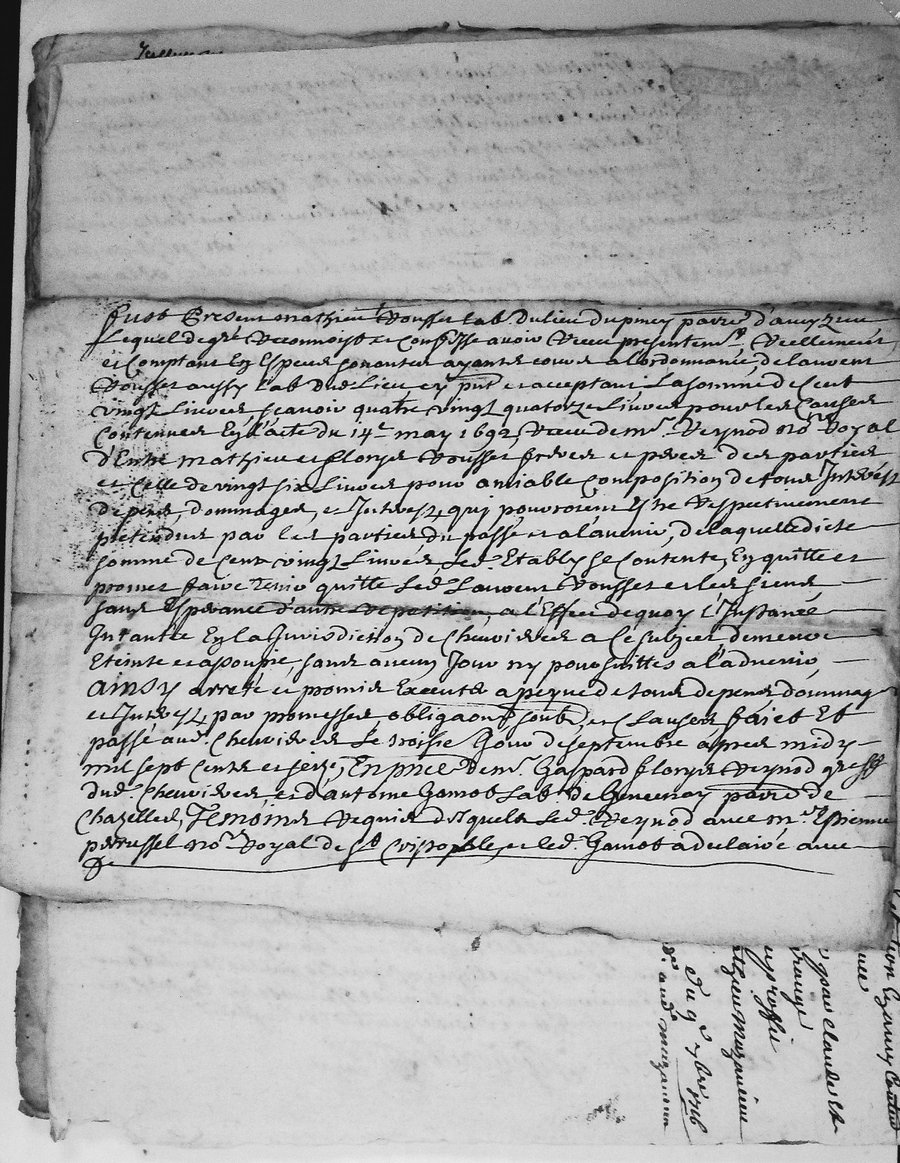 fust Present mathieu Rousset lab. du lieu du piney parre. d'aveyzieu
Lequel de gré Reconnoist et Confesse avoir Receu presentemt. Reellement
et Comptant En Especes sonantes ayantes cours a l'ordonnance, de laurent
Rousset aussy lab. dud. Lieu cy pnt. et acceptant La somme de Cent
vingt Livres scavoir quatre vingt quatorze Livres pour les Causes
Contenues En l'acte du 14e. may 1692, Receu de me. Reynod nore. Royal
d'Entre mathieu et florys Rousset freres et peres des parties
et Celle de vingt six Livres pour amiable Composition de tous Interest
depens, dommages, et Interest, qui pourroient Estre Respectivement
pretendus par les parties du passé et a l'avenir, de laquelle dicte
somme de Cent vingt Livres, Led. Etably se Contente, En quitte et
promet faire tenir quitte Led. Laurent Rousset et les siens
sans Esperance d'autre Repetition, a l'Effect de quoy l'Instance
Intantée En la Jurisdiction de Chevrieres a Ce subject demeure
Eteinte et assoupie, sans aucuns Jour ny poursuittes a l'advenir,
ainsy arreté et promis Executer a peyne de tous depens dommages
et Interest, par promesses obligaons, soub. et Clauses faict Et
passé aud. Chevrieres Le troisie. Jour de septembre apres midy
mil sept Cents et seize, En pnce de me. Gaspard florys Reynod greff.
dud. Chevrieres, et d'antoine Gamot Lab. de parre de
Chazelles, Temoins Requis desquels Led. Reynod avec me. Estienne
perussel nore. Royal de St. et led. Gamot a declairé avec
De
par claude Et
mazenieu
du 9e. 7bre 1716